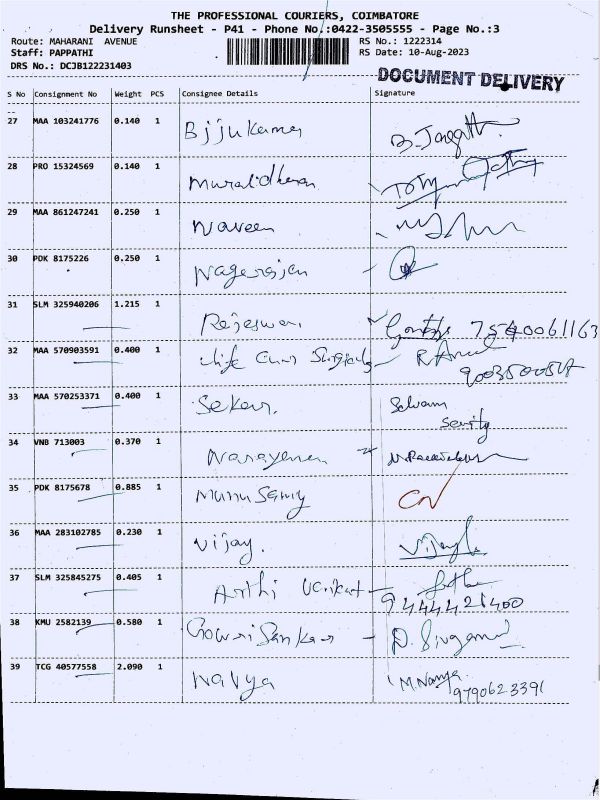 THE PROFESSIONAL COURIERS, COIMBATORE
Delivery Runsheet - P41 - Phone No.:0422-3505555 - Page No.:3
Route: MAHARANI AVENUE RS No.: 1222314
Staff: PAPPATHI RS Date: 10-Aug-2023
DRS No.: DCJB122231403
DOCUMENT DELIVERY
S No Consignment No Weight PCS Consignee Details Signature
27 MAA 103241776 0.140 1 Bijukumar
28 PRO 15324569 0.140 1 Muralidharan
29 MAA 861247241 0.250 1 Naveen
30 PDK 8175226 0.250 1 Nagarajan
31 SLM 325940206 1.215 1 Rajeswari 7540061163
32 MAA 570903591 0.400 1 Life Surgicals
33 MAA 570253371 0.400 1 Sekar. Selvam
34 VNB 713003 0.370 1 Narayanan
35 PDK 8175678 0.885 1 Munusamy CN
36 MAA 283102785 0.230 1 Vijay.
37 SLM 325845275 0.405 1 Arthi Venkat - 9444421400
38 KMU 2582139 0.580 1 Gowri Sankar -
39 TCG 40577558 2.090 1 Navya M. Navya 9790623391